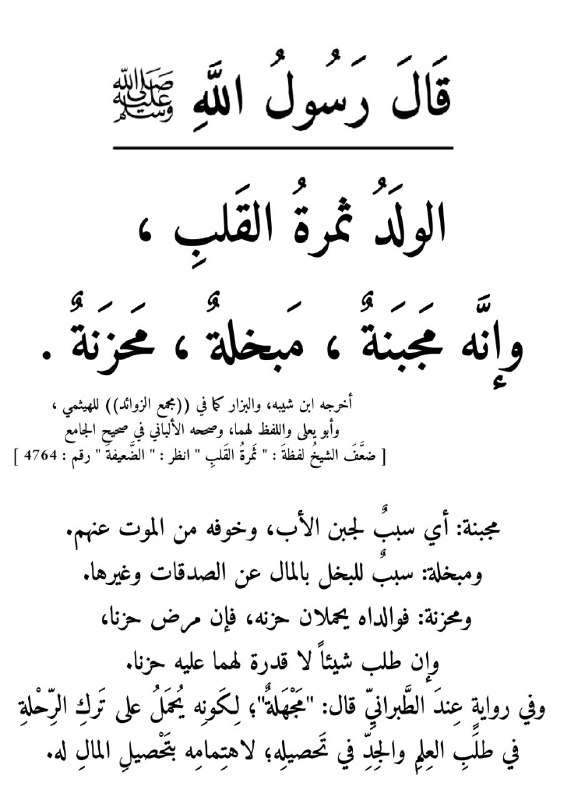 قَالَ رَسُولُ اللَّهِ ﷺ
الولَدُ ثمرةُ القَلبِ ،
وإنَّه مَجَبَنةٌ ، مَبخلةٌ ، مَحَزنَةٌ .
أخرجه ابن شيبه، والبزار كما في ((مجمع الزوائد)) للهيثمي ،
وأبو يعلى واللفظ لهما، وصححه الألباني في صحيح الجامع
[ ضعَّفَ الشيخُ لفظةَ : " ثَمرةُ القَلبِ " انظر : " الضَّعيفةَ " رقم : 4764 ]
مجبنة: أي سببٌ لجبن الأب، وخوفه من الموت عنهم.
ومبخلة: سببٌ للبخل بالمال عن الصدقات وغيرها.
ومحزنة: فوالداه يحملان حزنه، فإن مرض حزنا،
وإن طلب شيئاً لا قدرة لهما عليه حزنا.
وفي روايةٍ عِندَ الطَّبرانيِّ قال: "مَجْهَلةٌ"؛ لِكَونِه يُحمَلُ على تَركِ الرِّحْلةِ
في طلَبِ العِلمِ والجِدِّ في تَحصيلِه؛ لاهتِمامِه بتَحْصيلِ المالِ له.